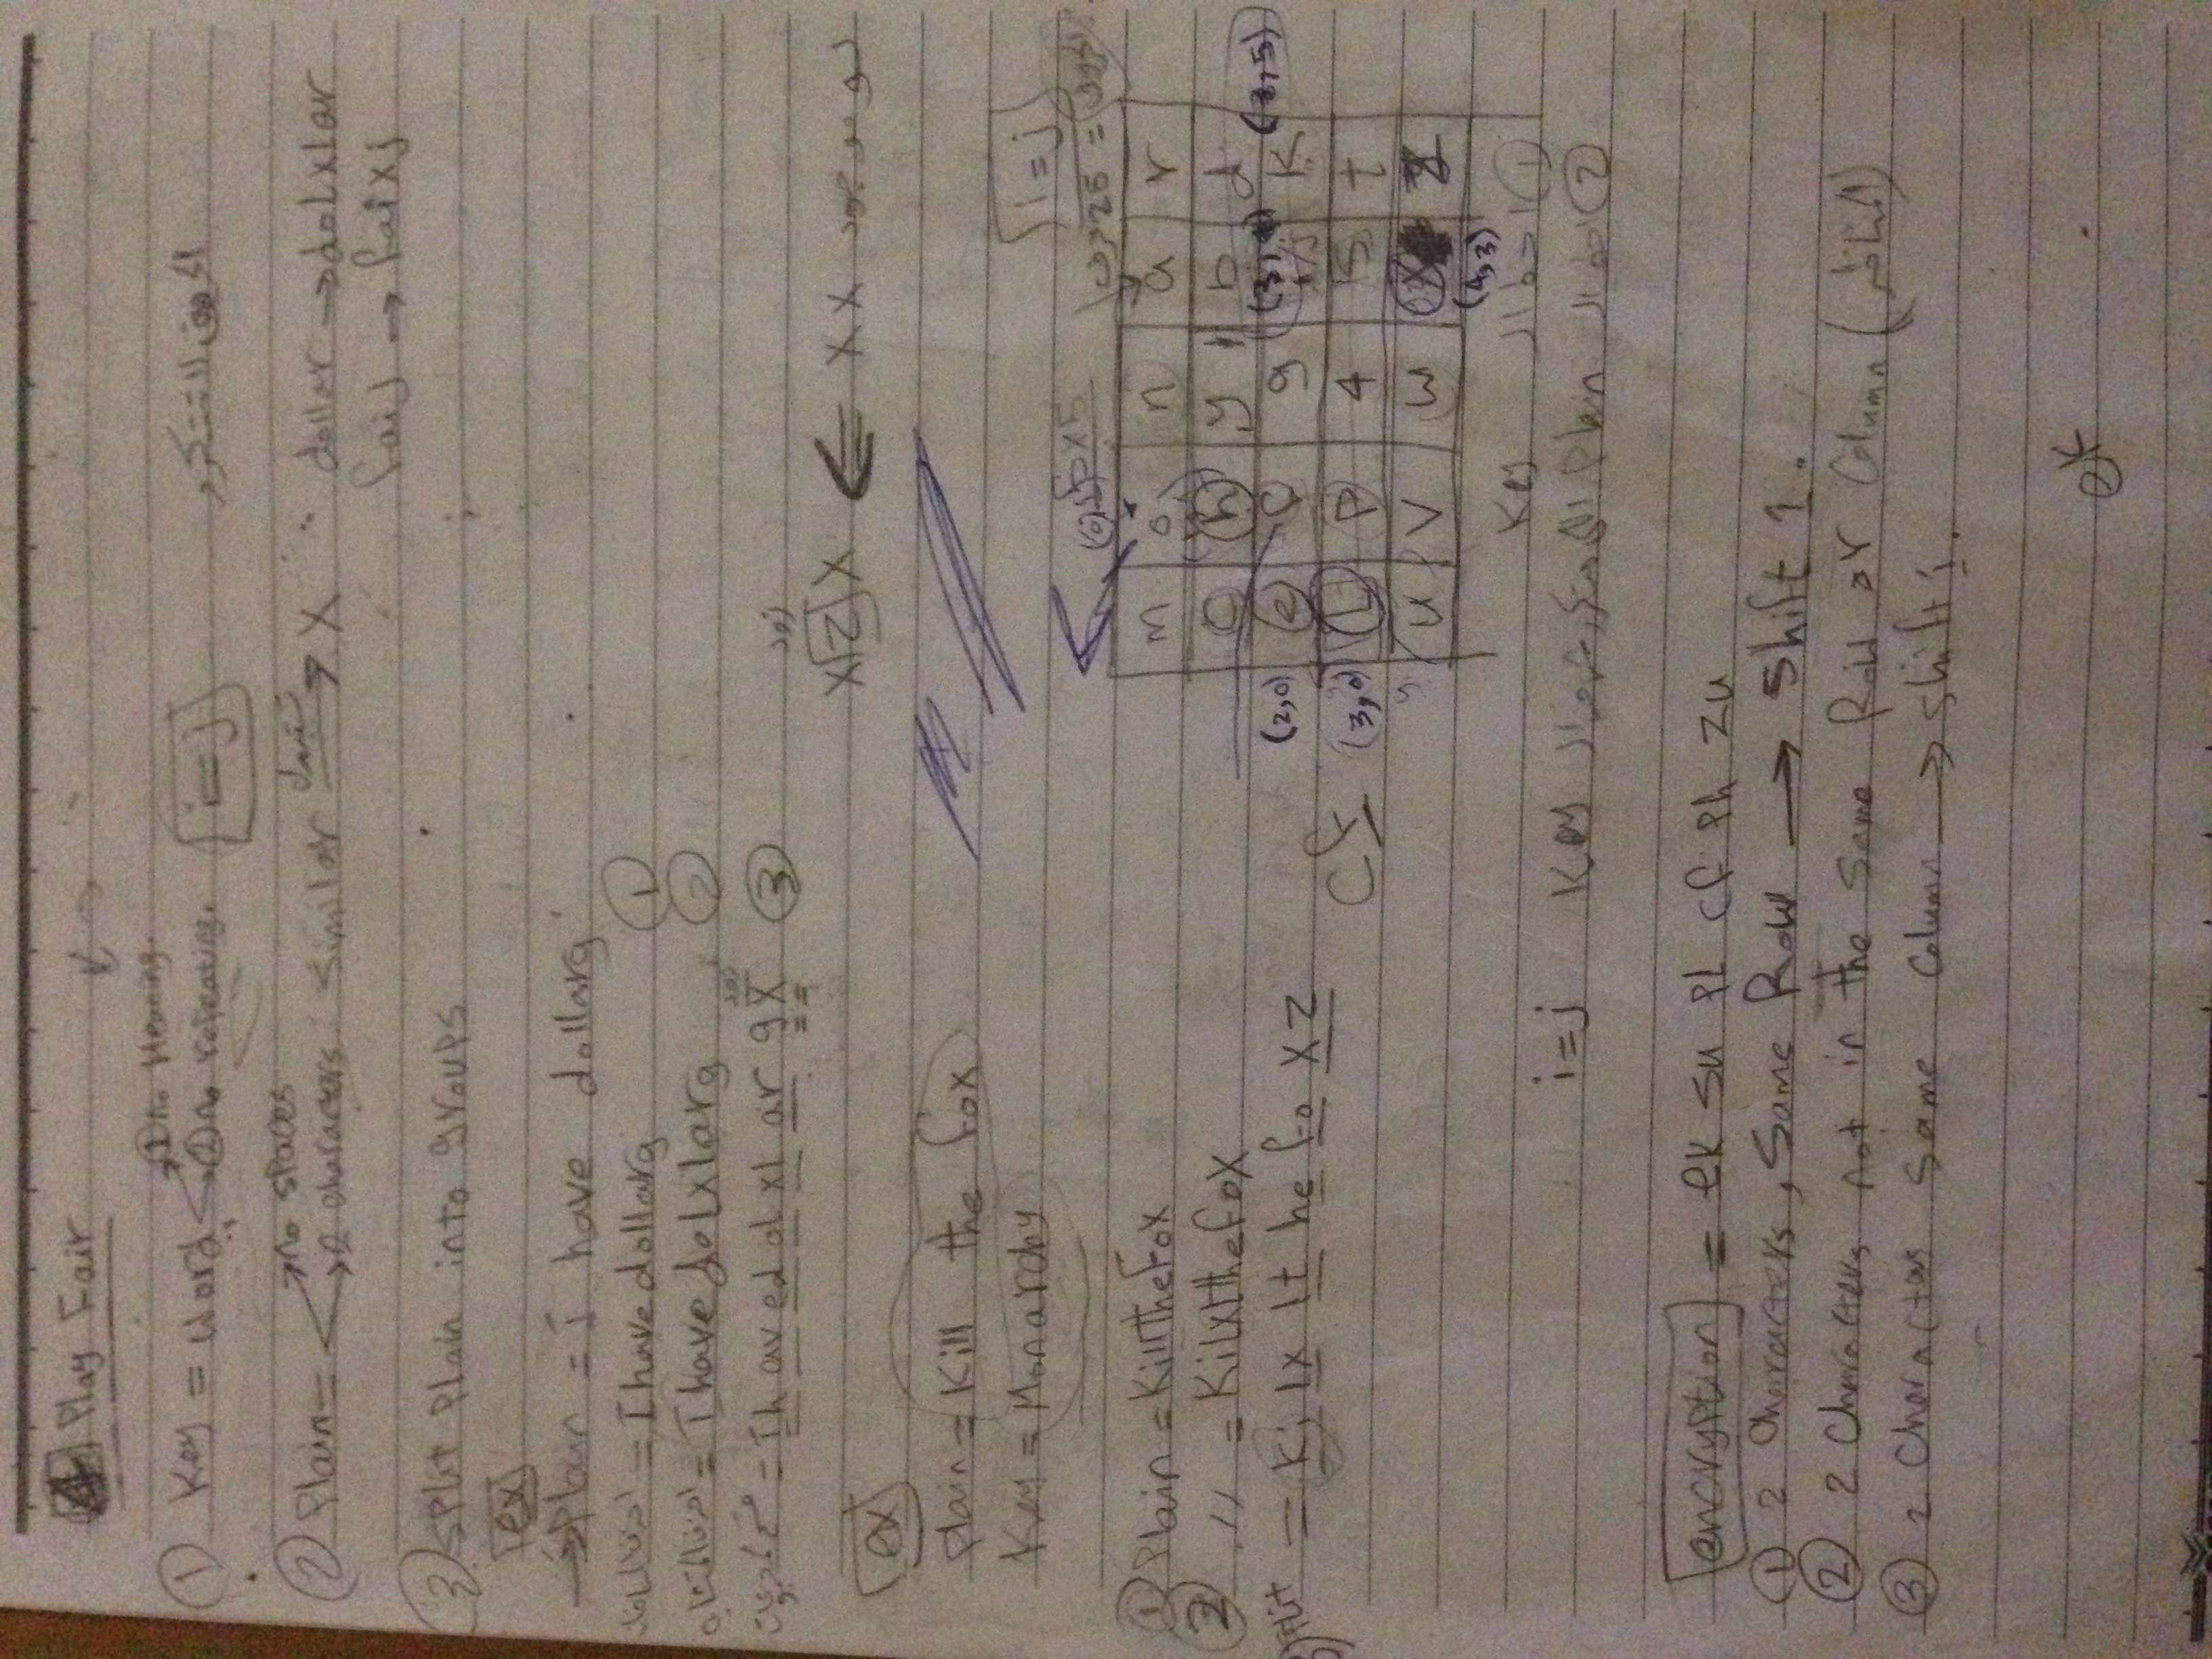 4 Play Fair
① Key = word ① no Meaning.
② no repeating. i=j الحروف لا تتكرر
② Plain = no spaces
2 characters similar → X dollar → dolxlar
faij → faixj
③ split Plain into groups
ex
→ Plain = I have dollarg
= Ihavedollarg ①
= Ihavedolxlarg ②
= Ih av ed ol xl ar gX ③
زود
لو موجود XX ⇐ XZX
زود
ex
Plain = Kill the fox
Key = Monarchy
i=j
5x5 = 25 حرف
① Plain = KillTheFox
② // = Kilxlthefox
③ split = Ki lx lt he fo xz
(0,1)
m o n a r
c h y b d
(2,0) e f g i/j k (3,5)
(3,4)
cf (3,0) L P 4 S t
u v w X Z
(4,3)
① احط ال Key
② احط ال Plain Key i=j
encryption = ek su pl cf ph zu
① 2 Characters, Same Row → shift 1.
② 2 Characters not in the same Row or Column (المناظر)
③ 2 Charactas same column → shift 1.
ek